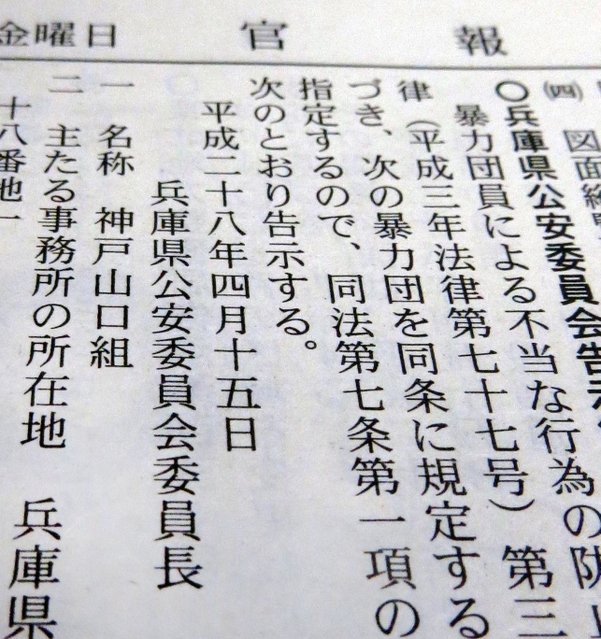 金曜日 官報
㈣ 図面縦
〇兵庫県公安委員会告示
暴力団員による不当な行為の防止
律(平成三年法律第七十七号)第三
づき、次の暴力団を同条に規定する
指定するので、同法第七条第一項の
次のとおり告示する。
平成二十八年四月十五日
兵庫県公安委員会委員長
一 名称 神戸山口組
二 主たる事務所の所在地 兵庫県
十八番地一